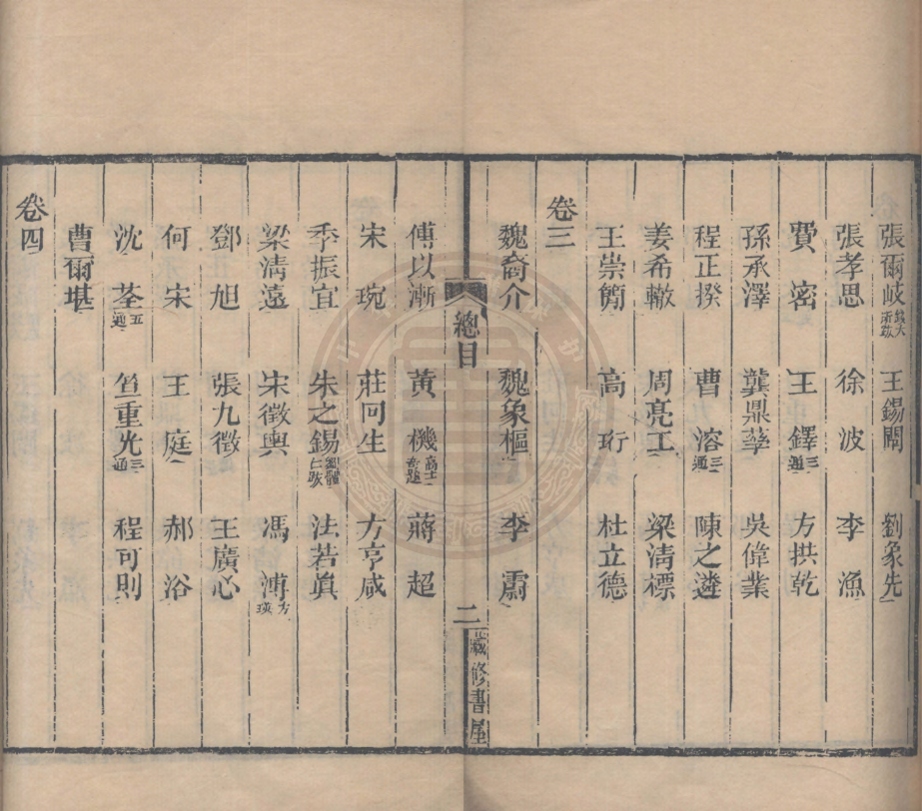 張爾岐 錢大 所跋 王錫闡 劉象先
張孝思 徐波 李漁
費密 王鐸 三通 方拱乾
孫承澤 龔鼎孳 吳偉業
卷三
程正揆 曹溶 三通 陳之遴
姜希轍 周亮工 梁清標
王崇簡 高珩 杜立德
魏裔介 魏象樞 李霨
總目 二 藏修書屋
傅以漸 黃機 高士奇題 蔣超
宋琬 莊冋生 方亨咸
季振宜 朱之錫 法若真
梁清遠 宋徵輿 馮溥
鄧旭 張九徵 王廣心
何宋 王庭 郝浴
沈荃 五通 笪重光 三通 程可則
曹爾堪
卷四